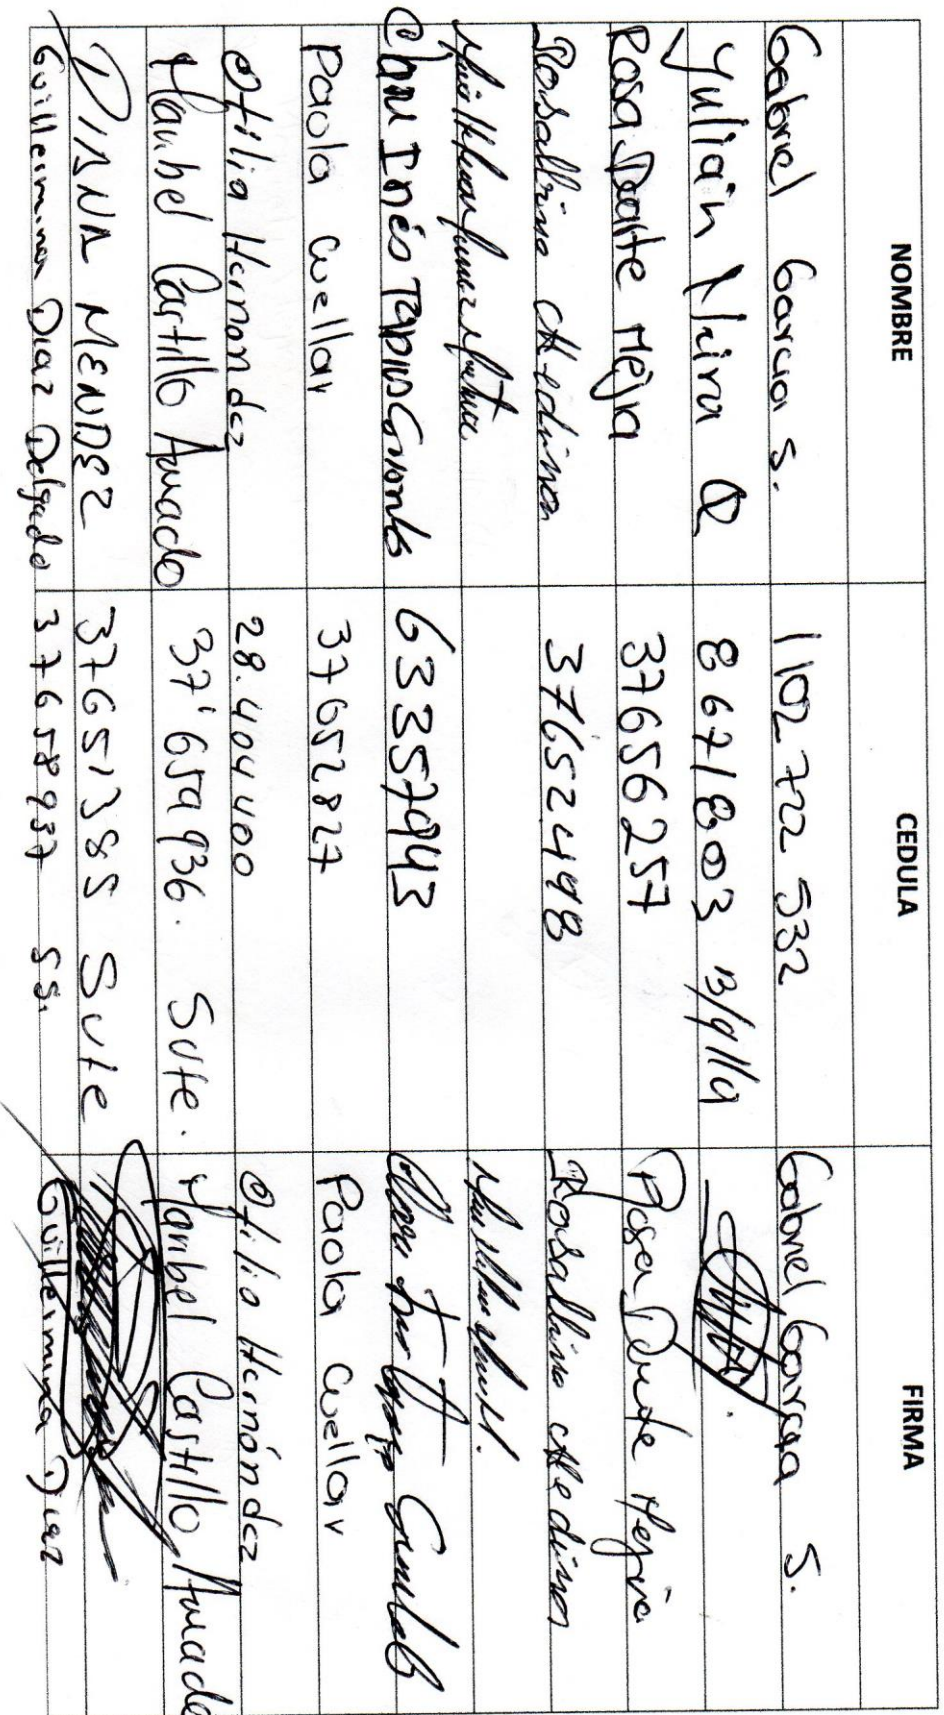 NOMBRE CEDULA FIRMA
Gabriel Garcia S. 1102 722 532 Gabriel Garcia S.
Yuliain Neira Q 8671803 B/qlla
Rosa Duarte Mejia 37656257 Rosa Duarte Mejia
Rosalbina Medina 37652448 Rosalbina Medina
Inés Tapias 63357943
Paola Cuellar 37652827 Paola Cuellar
Otilia Hernandez 28.404400 Otilia Hernández
Maribel Castillo Amado 37'659936. Sute. Maribel Castillo Amado
DIANA MENDEZ 37651385 Sute
Guillermina Diaz Delgado 37658937 SS. Guillermina Diaz